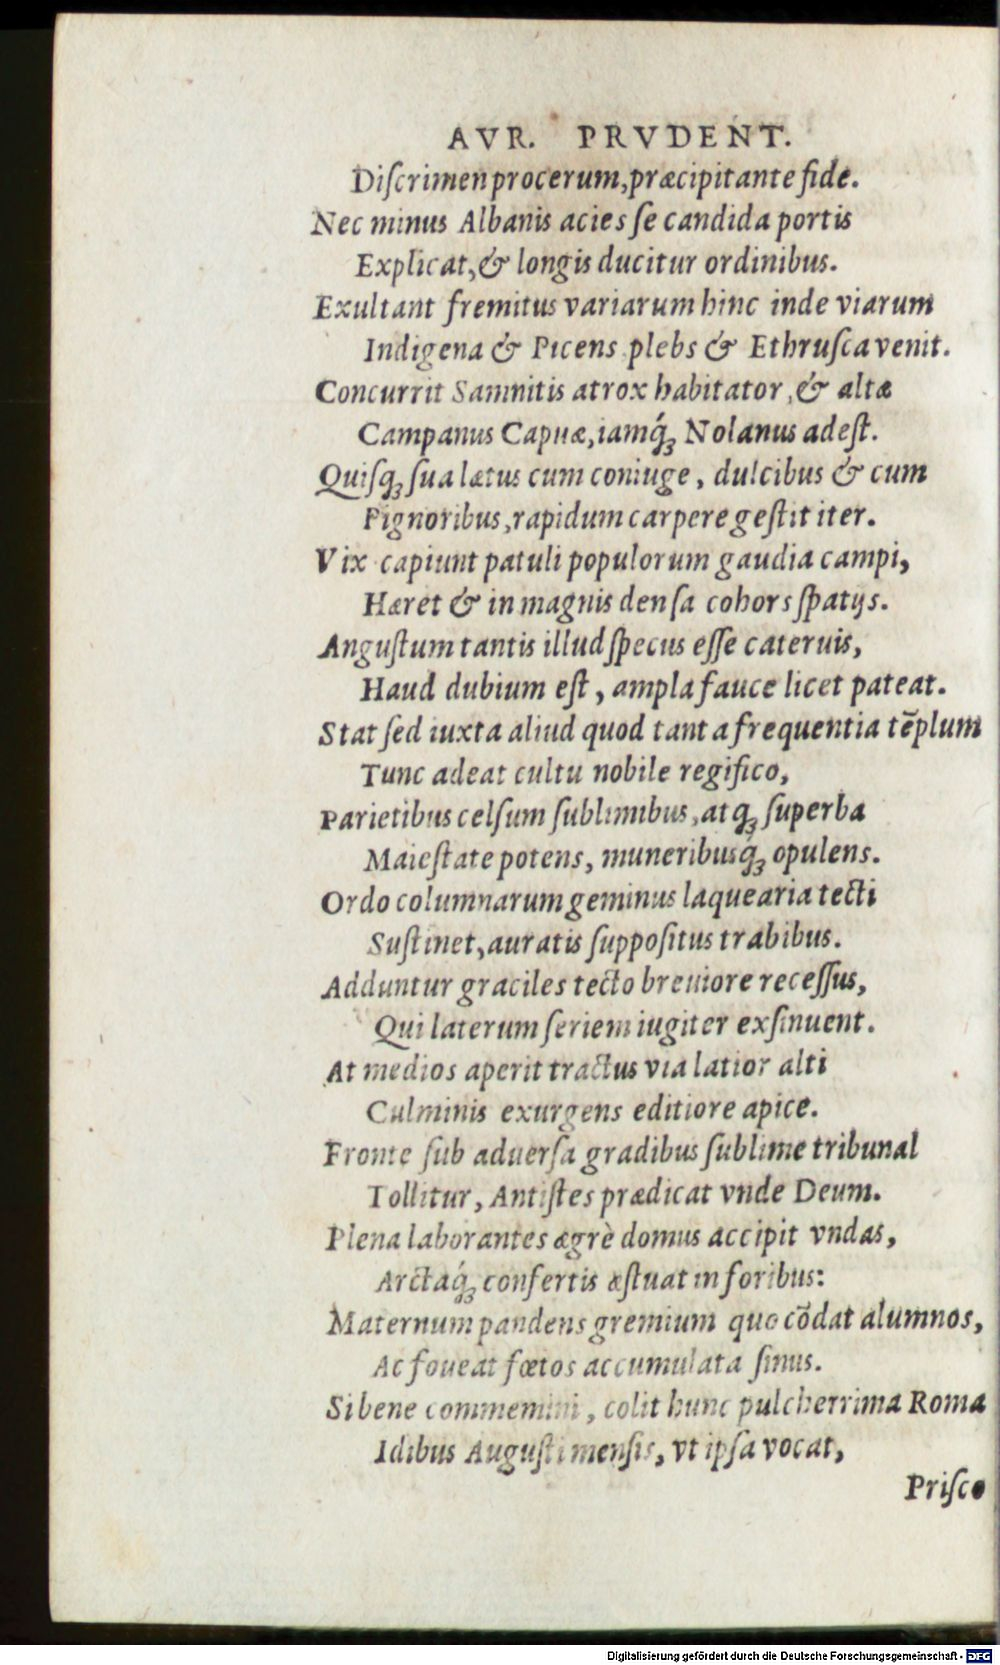 AVR. PRVDENT.
Diſcrimen procerum, præcipitante fide.
Nec minus Albanis acies ſe candida portis
Explicat, & longis ducitur ordinibus.
Exultant fremitus variarum hinc inde viarum
Indigena & Picens plebs & Ethruſca venit.
Concurrit Samnitis atrox habitator, & altæ
Campanus Capuæ, iamq́ꝫ Nolanus adeſt.
Quiſqꝫ ſua lætus cum coniuge, dulcibus & cum
Pignoribus, rapidum carpere geſtit iter.
Vix capiunt patuli populorum gaudia campi,
Hæret & in magnis denſa cohors ſpatijs.
Anguſtum tantis illud ſpecus eſſe cateruis,
Haud dubium eſt, ampla fauce licet pateat.
Stat ſed iuxta aliud quod tanta frequentia tēplum
Tunc adeat cultu nobile regifico,
Parietibus celſum ſublimibus, atqꝫ ſuperba
Maieſtate potens, muneribusq́ꝫ opulens.
Ordo columnarum geminus laquearia tecti
Suſtinet, auratis ſuppoſitus trabibus.
Adduntur graciles tecto breuiore receſſus,
Qui laterum ſeriem iugiter exſinuent.
At medios aperit tractus via latior alti
Culminis exurgens editiore apice.
Fronte ſub aduerſa gradibus ſublime tribunal
Tollitur, Antiſtes prædicat vnde Deum.
Plena laborantes ægrè domus accipit vndas,
Arctaq́ꝫ confertis æſtuat in foribus:
Maternum pandens gremium quo cōdat alumnos,
Ac foueat fœtos accumulata ſinus.
Si bene commemini, colit hunc pulcherrima Roma
Idibus Auguſti menſis, vt ipſa vocat,
Priſco
Digitalisierung gefördert durch die Deutsche Forschungsgemeinschaft - DFG